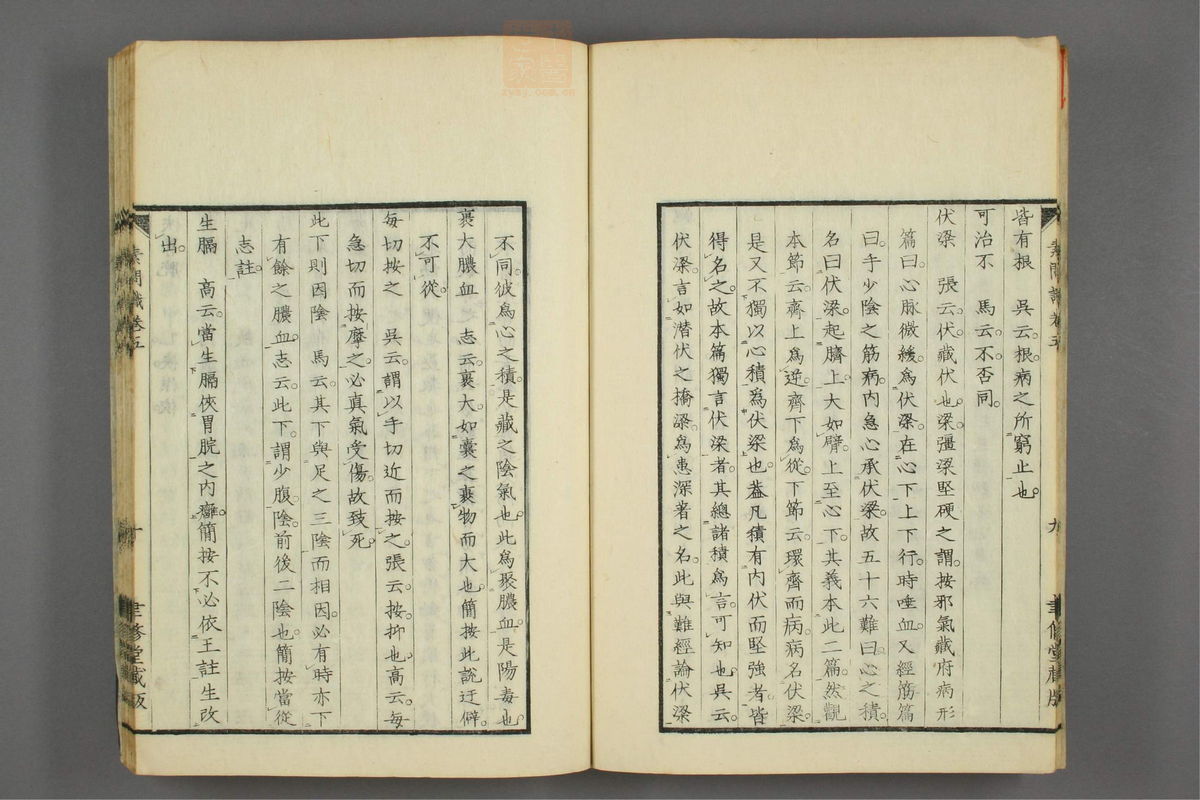 皆有根　吳云。根。病之所窮止也。
可治不　馬云。不。否同。
伏梁　張云。伏。藏伏也。梁。彊梁堅硬之謂。按邪氣藏府病形
篇曰。心脈微緩。爲伏梁。在心下。上下行。時唾血。又經筋篇
曰。手少陰之筋病。內急。心承伏梁。故五十六難曰。心之積。
名曰伏梁。起臍上。大如臂。上至心下。其義本此二篇。然觀
本節云。齊上爲逆。齊下爲從。下節云。環齊而病。病名伏梁。
是又不獨以心積爲伏梁也。蓋凡積有內伏而堅強者。皆
得名之。故本篇獨言伏梁者。其總諸積爲言。可知也。吳云。
伏梁。言如潛伏之橋梁。爲患深著之名。此與難經論伏梁
不同。彼爲心之積。是藏之陰氣也。此爲聚膿血。是陽毒也。
裹大膿血　志云。裹大。如囊之裹物而大也。簡按此說迂僻。
不可從。
每切按之　吳云。謂以手切近而按之。張云。按。抑也。高云。每
急切而按摩之。必真氣受傷。故致死。
此下則因陰　馬云。其下與足之三陰而相因。必有時亦下
有餘之膿血。志云。此下。謂少腹。陰。前後二陰也。簡按當從
志註。
生膈　高云。當生膈俠胃脘之內癰。簡按不必依王註生改
出。
素問識卷五
九
聿修堂藏版
素問識卷五
十
聿修堂藏版
zysj.com.cn